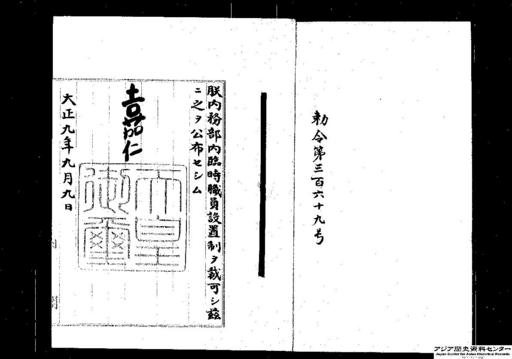 勅令第三百六十九号
朕内務部内臨時職員設置制ヲ裁可シ茲
ニ之ヲ公布セシム
嘉仁
天皇御璽
大正九年九月九日
アジア歴史資料センター
Japan Center for Asian Historical Records